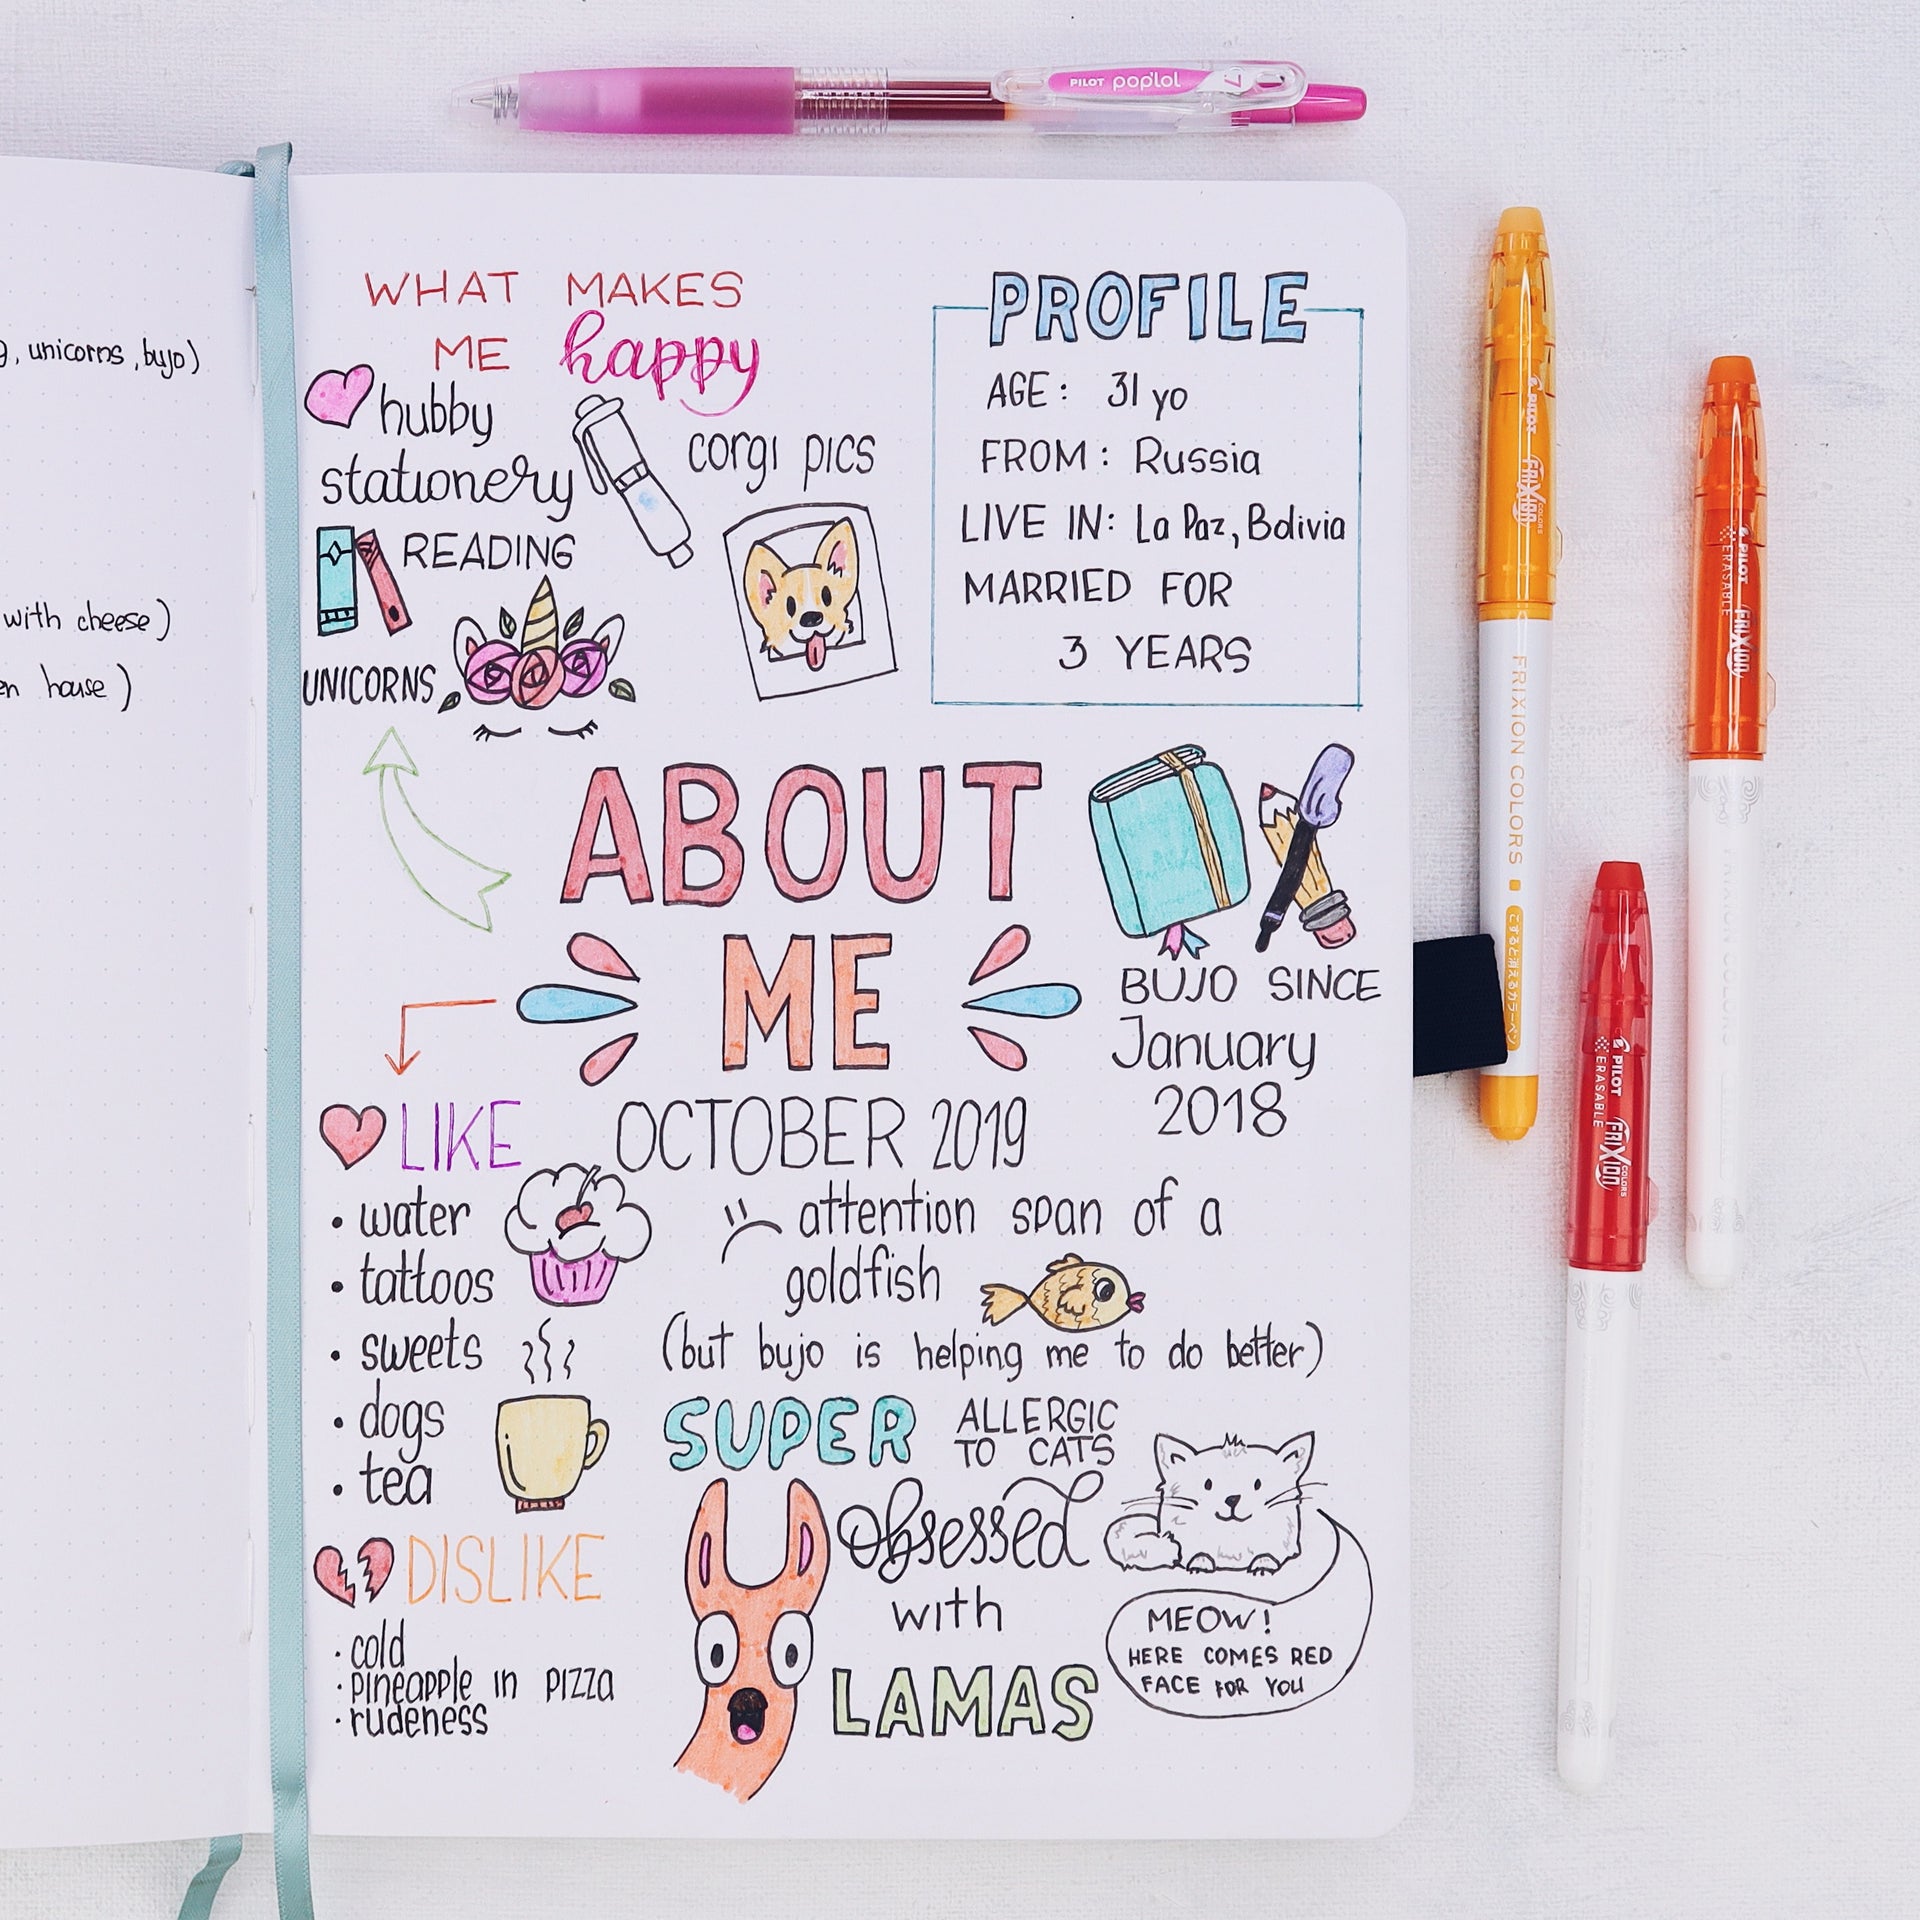 PILOT pop'lol 7
, unicorns, bujo)
with cheese)
house)
WHAT MAKES
ME happy
hubby
stationery
corgi pics
READING
UNICORNS
PROFILE
AGE: 31 yo
FROM: Russia
LIVE IN: La Paz, Bolivia
MARRIED FOR
3 YEARS
ABOUT
ME
OCTOBER 2019
BUJO SINCE
January
2018
LIKE
• water
• tattoos
• sweets
• dogs
• tea
attention span of a
goldfish
(but bujo is helping me to do better)
SUPER ALLERGIC
TO CATS
obsessed
with
LAMAS
MEOW!
HERE COMES RED
FACE FOR YOU
DISLIKE
· cold
· pineapple in pizza
· rudeness
PILOT
FRIXION COLORS
FRIXION COLORS
こすると消えるカラーペン
PILOT
ERASABLE
FRIXION
PILOT
ERASABLE
FRIXION COLORS